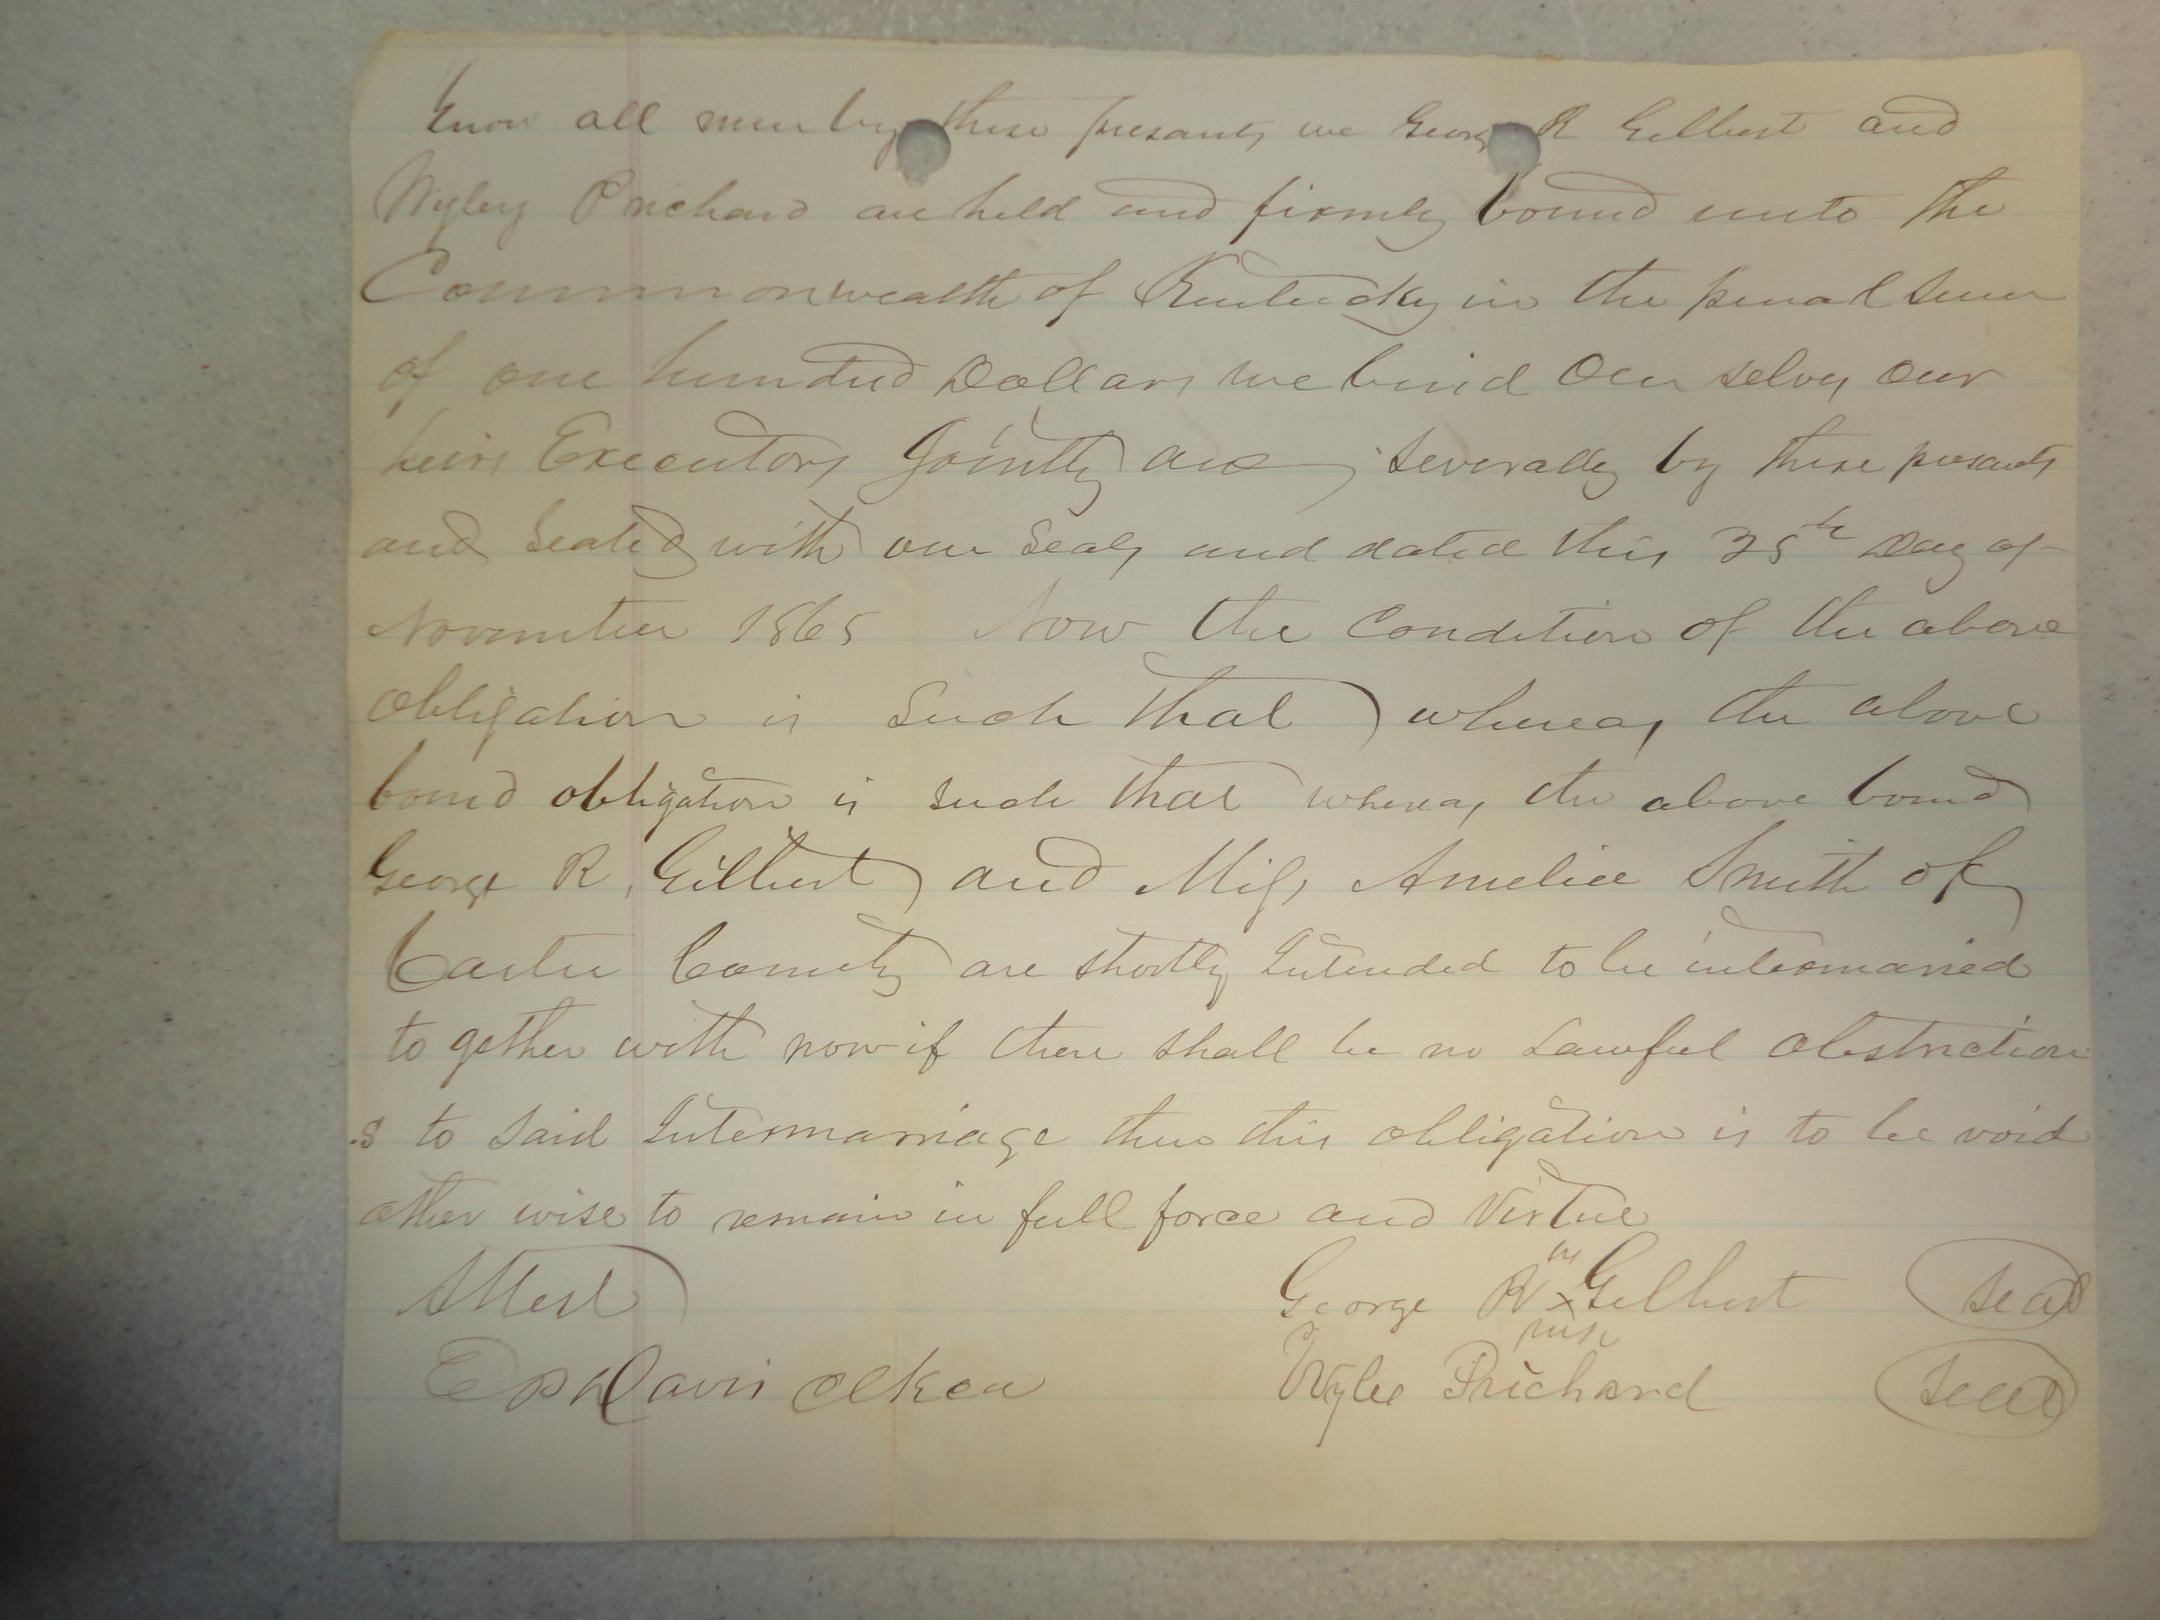 Know all men by these presants we George R Gilbert and
Wyley Prichard are held and firmly bound unto the
Commonwealth of Kentucky in the penal sum
of one hundred Dollars we bind Our selves our
heirs Executors Jointly and severally by these presants
and Sealed with our Seals and dated this 25th Day of
November 1865 Now the Condition of the above
Obligation is Such that whereas the above
bound obligation is such that whereas the above bound
George R Gilbert and Miss Amelia Smith of
Carter County are shortly Intended to be intermarried
to gether with now if there shall be no Lawful obstruction
s to said Intermarriage then this obligation is to be void
other wise to remain in full force and Virtue
Attest George R x Gilbert Seal
Wylee Prichard Seal
Davis